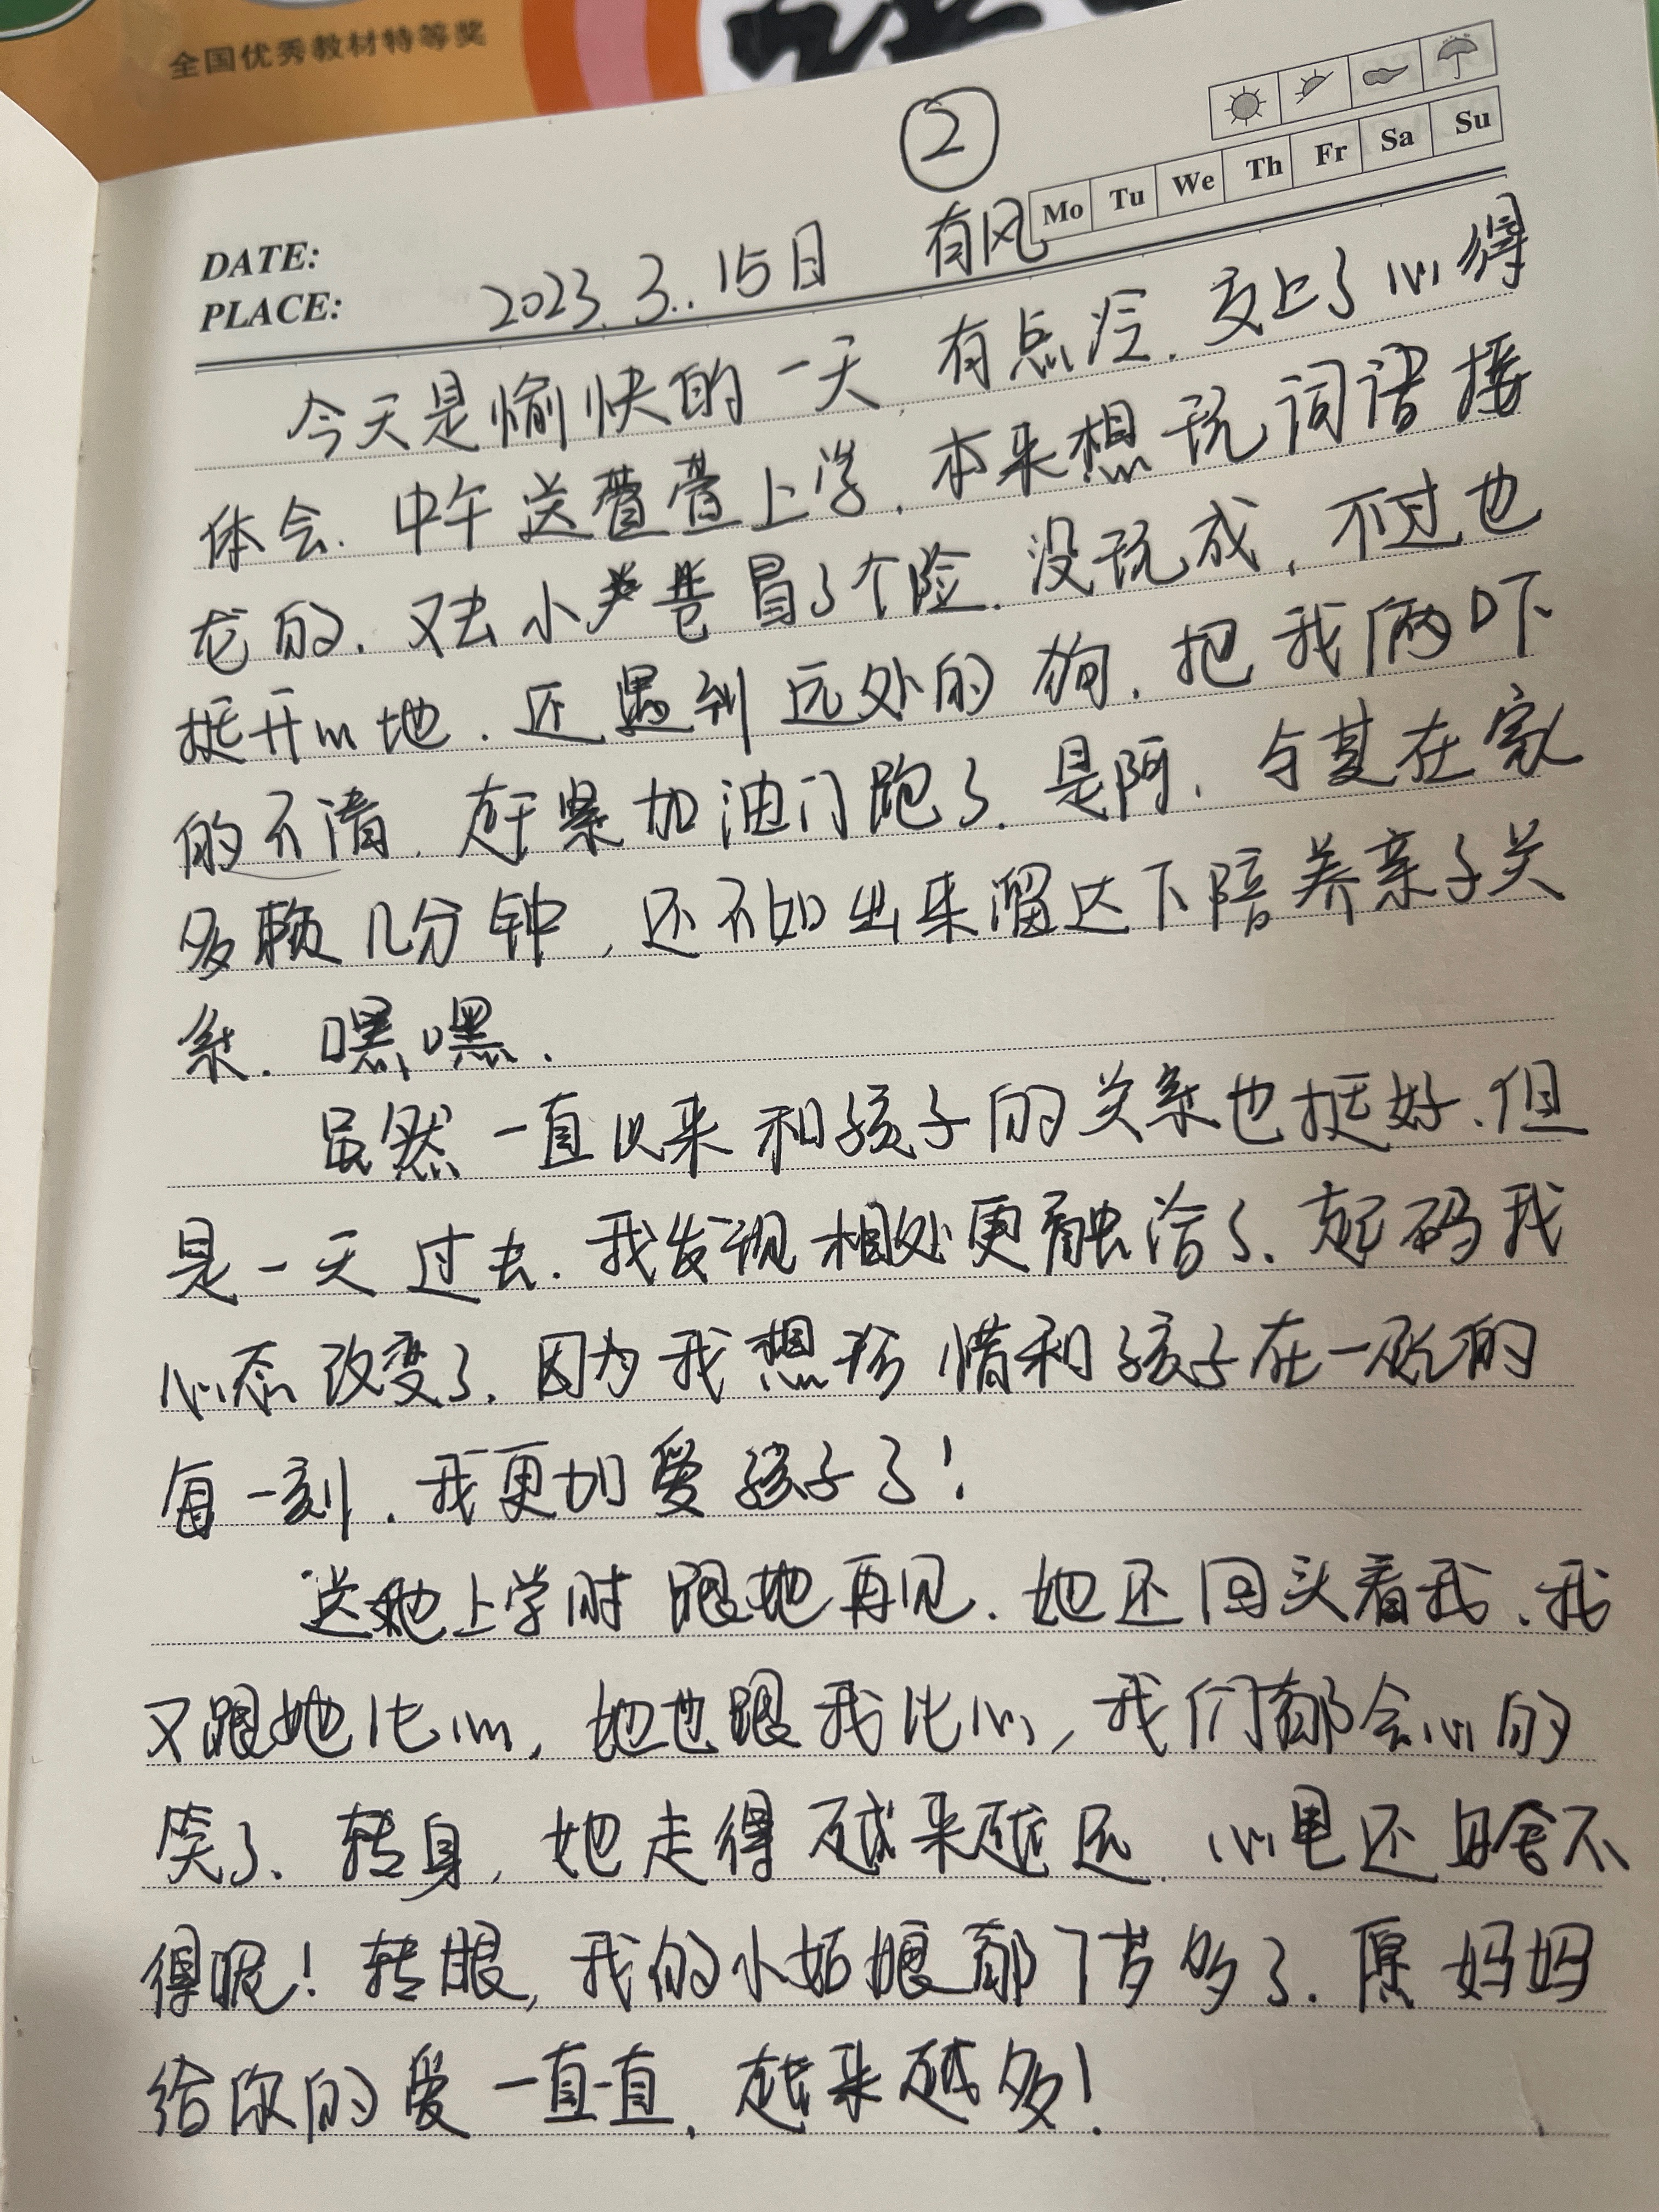 全国优秀教材特等奖
②
Mo Tu We Th Fr Sa Su
DATE:
PLACE:
2023.3..15日 有风
今天是愉快的一天,有点冷.交上了心得
体会.中午送萱萱上学.本来想玩词语接
龙的.又去小巷冒了个险.没玩成,不过也
挺开心地.还遇到远处的狗.把我俩吓
的不清.赶紧加油门跑了.是阿.与其在家
多赖几分钟,还不如出来溜达下陪养亲子关
系.嘿嘿.
虽然一直以来和孩子的关系也挺好.但
是一天过去.我发现相处更融洽了.起码我
心态改变了.因为我想珍惜和孩子在一起的
每一刻.我更加爱孩子了!
送她上学时跟她再见.她还回头看我.我
又跟她比心,她也跟我比心,我们都会心的
笑了.转身,她走得越来越远.心里还舍不
得呢!转眼,我的小姑娘都7岁多了.愿妈妈
给你的爱一直一直,越来越多!